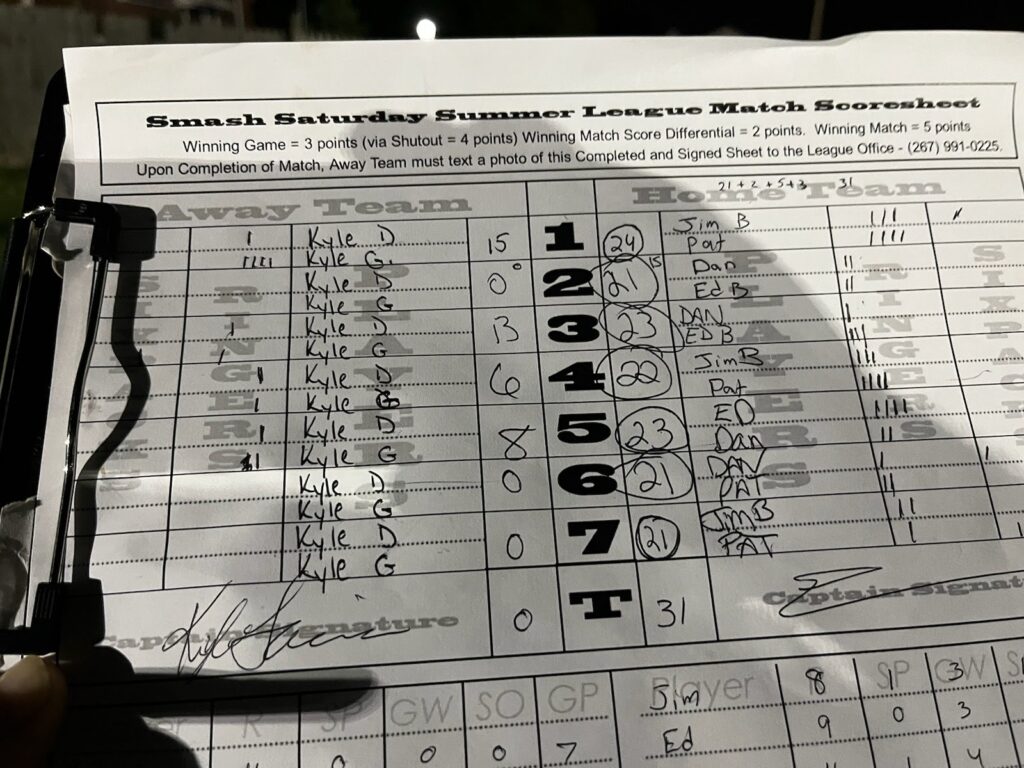 Smash Saturday Summer League Match Scoresheet
Winning Game = 3 points (via Shutout = 4 points) Winning Match Score Differential = 2 points. Winning Match = 5 points
Upon Completion of Match, Away Team must text a photo of this Completed and Signed Sheet to the League Office - (267) 991-0225.
21 + 2 + 5 + 3 31
Away Team Home Team
Kyle D 15 1 24 Jim B
Kyle G. Pat
Kyle D 0 2 21 15 Dan
Kyle G Ed B
Kyle D 13 3 23 DAN
Kyle G ED B
Kyle D 6 4 22 Jim B
Kyle G Pat
Kyle D 8 5 23 ED
Kyle G Dan
Kyle D 0 6 21 DAN
Kyle G PAT
Kyle D 0 7 21 Jim B
Kyle G PAT
Captain Signature 0 T 31 Captain Signature
R SP GW SO GP Player SP GW
Jim 8 1 3
0 0 7 Ed 9 0 3
4